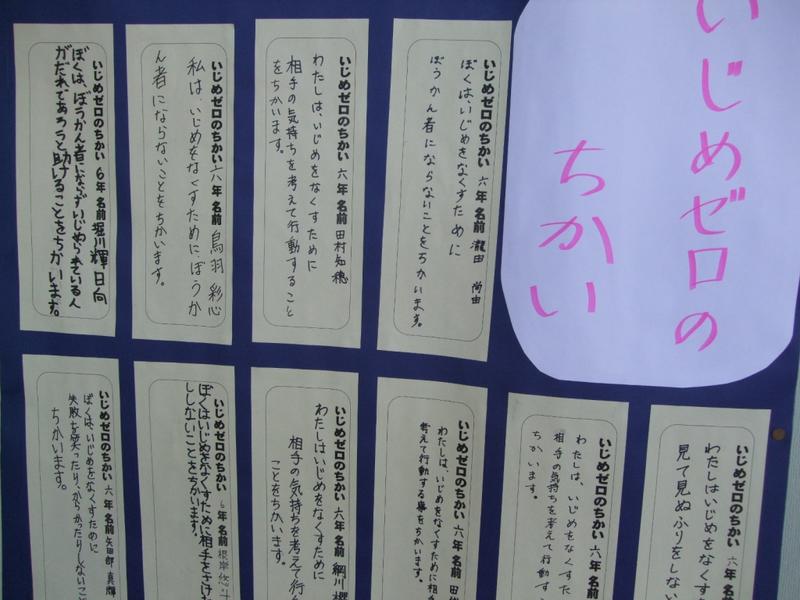 いじめゼロの
ちかい
いじめゼロのちかい 六年 名前 瀧田 尚由
ぼくは、いじめをなくすために
ぼうかん者にならないことをちかいます。
いじめゼロのちかい 六年 名前 田村知穂
わたしは、いじめをなくすために
相手の気持ちを考えて行動すること
をちかいます。
いじめゼロのちかい 六年 名前 鳥羽 彩心
私は、いじめをなくすために、ぼうか
ん者にならないことをちかいます。
いじめゼロのちかい 6年 名前 堀川輝 日向
ぼくは、ぼうかん者にならずいじめられている人
がだれであろうと助けることをちかいます。
いじめゼロのちかい 六年
わたしはいじめをなくす
見て見ぬふりをしない
いじめゼロのちかい 六年 名前
わたしは、いじめをなくすた
相手の気持ちを考えて行動す
ちかいます。
いじめゼロのちかい 六年 名前 田
わたしは、いじめをなくすために相
考えて行動する事をちかいます。
いじめゼロのちかい 六年 名前 綱川
わたしはいじめをなくすために
相手の気持ちを考えて行
ことをちかいます。
いじめゼロのちかい 6年 名前 根岸
ぼくはいじめをなくすために相手をきずつ
ししないことをちかいます。
いじめゼロのちかい 六年 名前 矢田部 真輝
ぼくは、いじめをなくすために
失敗を笑ったり、からかったりしないこ
ちかいます。